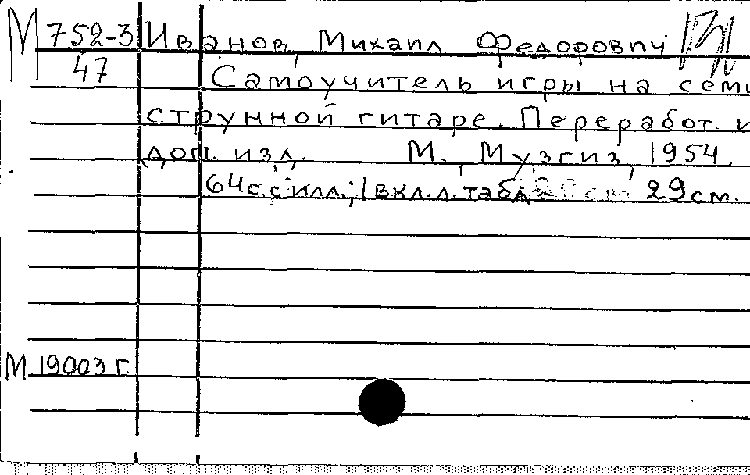 М 752-3 Иванов, Михаил Федорович
47 Самоучитель игры на семи
струнной гитаре. Переработ. и
доп. изд. М., Музгиз, 1954.
64 с. с илл.; 1 вкл. л. табл. 29 см.
М 19003 г.